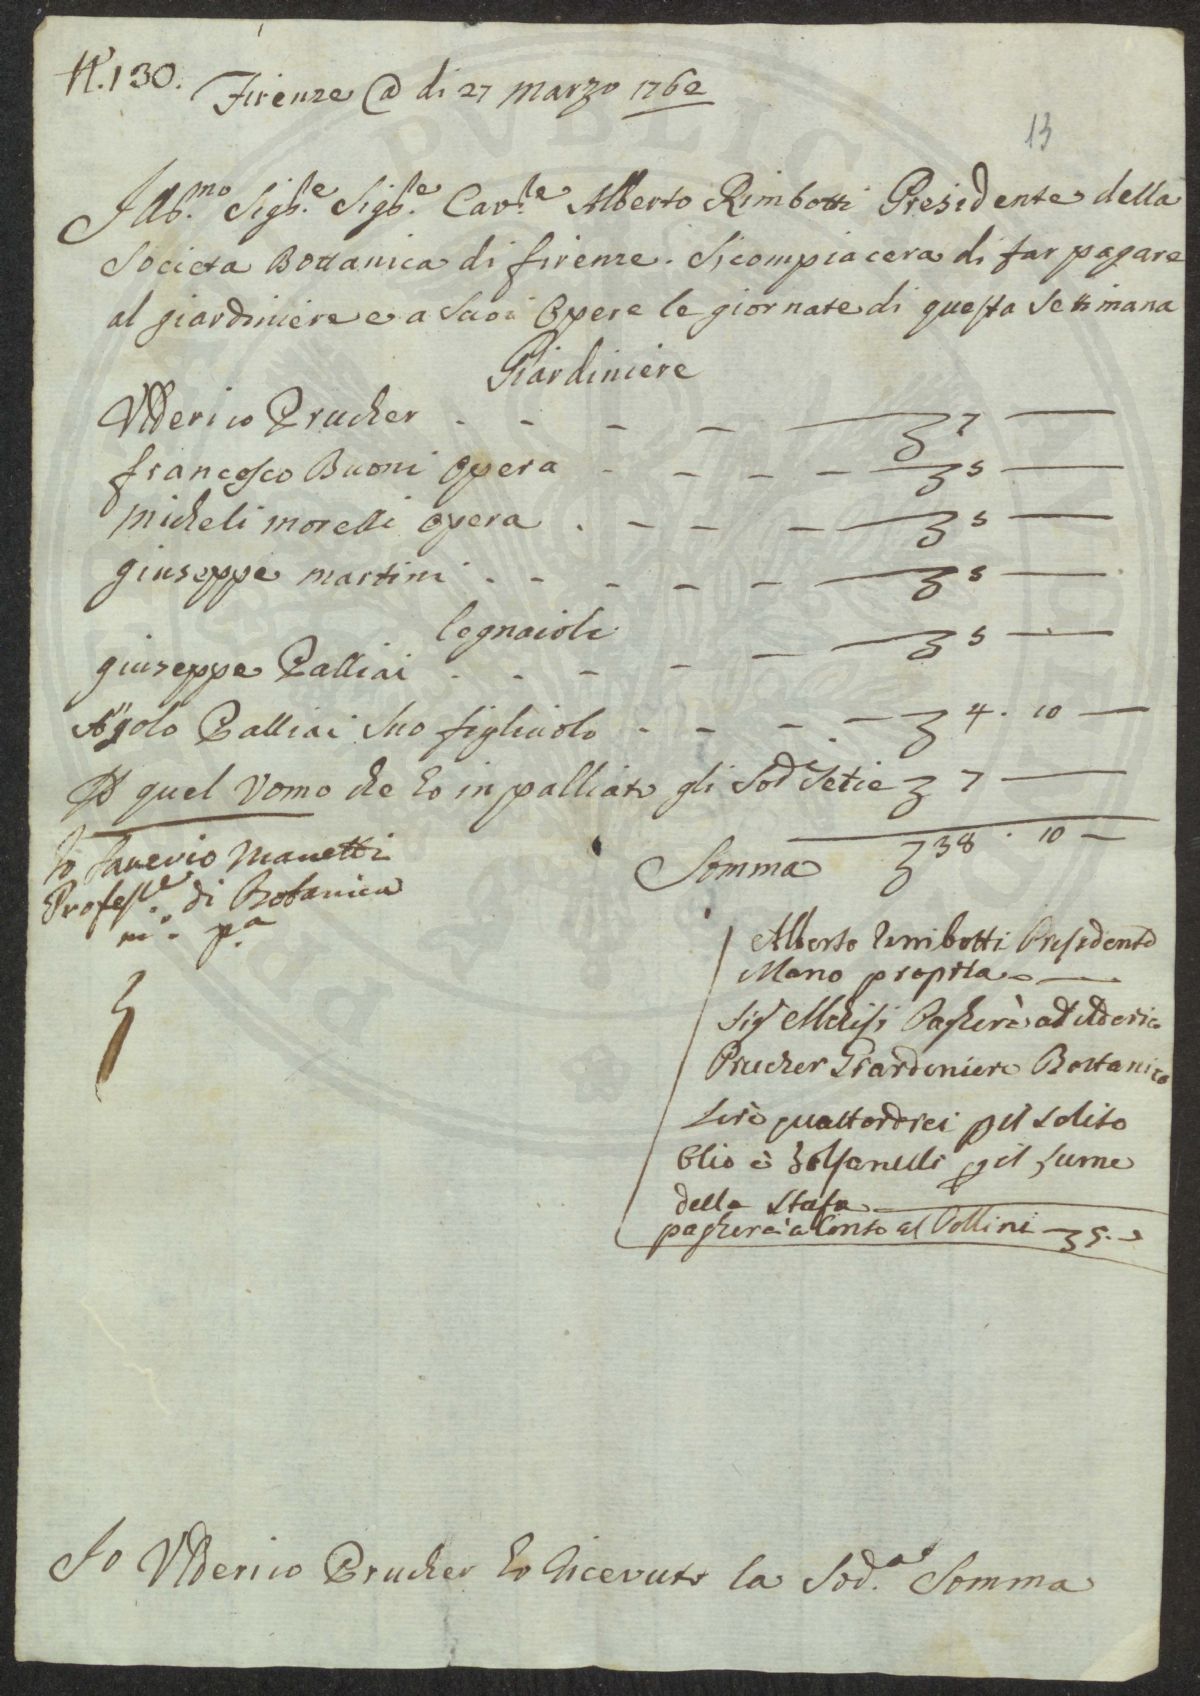 N.130.
Firenze @ di 27 Marzo 1762
13
Illb.mo Sigb.e Sigb.e Cav.le Alberto Rimbotti Presidente della
Società Bottanica di firenze. Si compiacera di far pagare
al giardiniere e a suoi Opere le giornate di questa Settimana
Giardiniere
Ulderico Prucher - - - - 7
francesco Buoni Opera - - - - 5
Micheli moretti Opera - - - - 5
giuseppe martini - - - - - 5
legnaioli
giuseppe Palliai - - - - - 5
A.golo Palliai Suo figliuolo - - - - 4. 10
quel Uomo che Eo inpalliato gli Sod. Setie 7
Somma 38 . 10
Io Saverio Manetti
Profess.e di Botanica
m.o p.a
Alberto Rimbotti Presidente
Mano propria
Sig. Pagherà ad Ulderico
Prucher Giardiniere Bottanico
Lire quattordici p il solito
Olio e Zolfanelli p il lume
della Stufa
pagherà a Conto al Pollini 5.
Io Ulderico Prucher Eo Riceuuto la Sod.a Somma